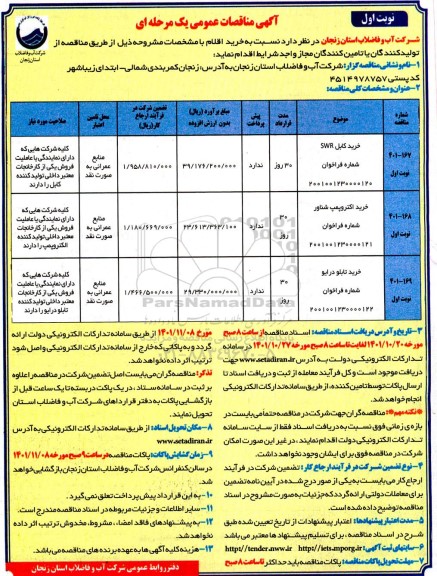 نوبت اول
آگهی مناقصات عمومی یک مرحله ای
شرکت آب و فاضلاب استان زنجان
شرکت آب و فاضلاب استان زنجان در نظر دارد نسبت به خرید اقلام با مشخصات مشروحه ذیل از طریق مناقصه از
تولیدکنندگان یا تامین کنندگان مجاز واجد شرایط اقدام نماید:
۱- نام و نشانی مناقصه گزار: شرکت آب و فاضلاب استان زنجان به آدرس: زنجان کمربندی شمالی- ابتدای زیباشهر
کدپستی ۴۵۱۴۹۷۸۷۵۷
۲- عنوان و مشخصات کلی مناقصه:
شماره مناقصه | موضوع | مدت قرارداد | پیش پرداخت | مبلغ برآورد (ریال) بدون ارزش افزوده | تضمین شرکت در فرآیند ارجاع کار(ریال) | محل تامین اعتبار | صلاحیت مورد نیاز
۲۰۱-۱۶۷ نوبت اول | خرید کابل SWR شماره فراخوان ۲۰۰۱۰۰۱۲۳۰۰۰۰۱۲۰ | ۳۰ روز | ندارد | ۳۹/۱۷۶/۲۰۰/۰۰۰ | ۱/۹۵۸/۸۱۰/۰۰۰ | منابع عمرانی به صورت نقد | کلیه شرکت هایی که دارای نمایندگی یا عاملیت فروش یکی از کارخانجات معتبر داخلی تولید کننده کابل را دارند
۲۰۱-۱۶۸ نوبت اول | خرید الکتروپمپ شناور شماره فراخوان ۲۰۰۱۰۰۱۲۳۰۰۰۰۱۲۱ | ۳۰ روز | ندارد | ۲۳/۶۱۳/۳۶۳/۱۰۰ | ۱/۱۸۰/۶۶۹/۰۰۰ | منابع عمرانی به صورت نقد | کلیه شرکت هایی که دارای نمایندگی یا عاملیت فروش یکی از کارخانجات معتبر داخلی تولید کننده الکتروپمپ را دارند
۲۰۱-۱۶۹ نوبت اول | خرید تابلو درایو شماره فراخوان ۲۰۰۱۰۰۱۲۳۰۰۰۰۱۲۲ | ۳۰ روز | ندارد | ۲۹/۳۳۰/۰۰۰/۰۰۰ | ۱/۴۶۶/۵۰۰/۰۰۰ | منابع عمرانی به صورت نقد | کلیه شرکت هایی که دارای نمایندگی یا عاملیت فروش یکی از کارخانجات معتبر داخلی تولید کننده تابلو درایو را دارند
۳- تاریخ و آدرس دریافت اسناد مناقصه: اسناد مناقصه از ساعت ۸ صبح
مورخه ۱۴۰۱/۱۰/۲۰ لغایت تا ساعت ۸ صبح مورخه ۱۴۰۱/۱۰/۲۷ در سامانه
تدارکات الکترونیکی دولت به آدرس www.setadiran.ir جهت
دریافت موجود است و کل فرآیند معامله از ثبت و دریافت اسناد تا
ارسال پاکات توسط تامین کننده، از طریق سامانه تدارکات الکترونیکی
انجام خواهد شد.
*نکته مهم*: مناقصه گران جهت شرکت در مناقصه حتما می بایست در
بازه ی زمانی فوق نسبت به دریافت اسناد فقط از سایت سامانه
تدارکات الکترونیکی دولت اقدام نمایند، در غیر این صورت امکان
شرکت در مناقصه فوق برای ایشان وجود نخواهد داشت.
۴- نوع تضمین شرکت در فرآیند ارجاع کار: تضمین شرکت در فرآیند
ارجاع کار می بایست به یکی از صور درج شده در آیین نامه تضمین
برای معاملات دولتی ارائه گردد که جزئیات به صورت مشروح در اسناد
مناقصه توضیح داده شده است.
۵- مدت اعتبار پیشنهادها: اعتبار پیشنهادات از تاریخ تعیین شده طبق
شرح در اسناد مناقصه، برای تسلیم پیشنهاد ها معتبر می باشد
سایتهای ثبت آگهی: http//iets.mporg.ir http//tender.nww.ir
۶- مهلت تحویل پاکات مناقصه: پاکات مناقصه باید حداکثر تا ساعت ۸ صبح
مورخ ۱۴۰۱/۱۱/۰۸ از طریق سامانه تدارکات الکترونیکی دولت ارائه
گردد و به پاکاتی که خارج از سامانه تدارکات الکترونیکی واصل شود
ترتیب اثر داده نخواهد شد.
تذکر: مناقصه گران می بایست اصل تضمین شرکت در مناقصه را علاوه
بر ثبت در سامانه ستاد، در یک پاکت در بسته تا یک ساعت قبل از
بازگشایی پاکات به دفتر قراردادهای شرکت آب و فاضلاب استان
تحویل نمایند.
۸- مکان تحویل اسناد: از طریق سامانه تدارکات الکترونیکی به آدرس
www.setadiran.ir
۹- زمان گشایش پاکات: پاکات مناقصه در ساعت ۹ صبح مورخه ۱۴۰۱/۱۱/۰۸
در سالن کنفرانس شرکت آب و فاضلاب استان زنجان بازگشایی خواهد
شد.
۱۰- به این قرارداد پیش پرداخت تعلق نمی گیرد.
۱۱- سایر اطلاعات و جزئیات مربوطه در اسناد مناقصه مندرج است.
۱۲- به پیشنهادهای فاقد امضا، مشروط، مخدوش ترتیب اثر داده
نخواهد شد.
۱۳- هزینه کلیه آگهی ها به عهده برنده های مناقصه می باشد.
دفتر روابط عمومی شرکت آب و فاضلاب استان زنجان